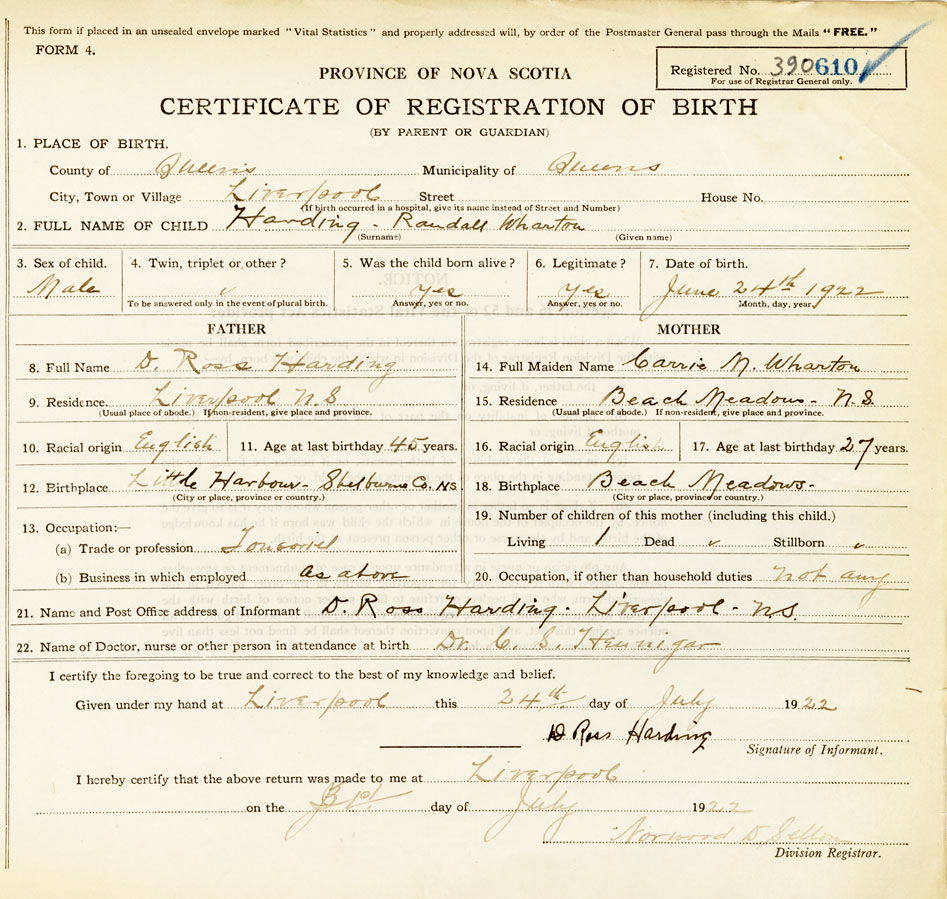 This form if placed in an unsealed envelope marked "Vital Statistics" and properly addressed will, by order of the Postmaster General pass through the Mails "FREE."
FORM 4.
Registered No. 390610
For use of Registrar General only.
PROVINCE OF NOVA SCOTIA
CERTIFICATE OF REGISTRATION OF BIRTH
(BY PARENT OR GUARDIAN)
1. PLACE OF BIRTH.
County of Queens Municipality of Queens
City, Town or Village Liverpool Street House No.
(If birth occurred in a hospital, give its name instead of Street and Number)
2. FULL NAME OF CHILD Harding - Randall Wharton
(Surname) (Given name)
3. Sex of child. 4. Twin, triplet or other? 5. Was the child born alive? 6. Legitimate? 7. Date of birth.
Male yes yes June 24th 1922
To be answered only in the event of plural birth. Answer, yes or no. Answer, yes or no. Month, day, year
FATHER MOTHER
8. Full Name D. Ross Harding 14. Full Maiden Name Carrie M. Wharton
9. Residence. Liverpool N.S 15. Residence Beach Meadows - N.S.
(Usual place of abode.) If non-resident, give place and province. (Usual place of abode.) If non-resident, give place and province.
10. Racial origin English 11. Age at last birthday 45 years. 16. Racial origin English 17. Age at last birthday 27 years.
12. Birthplace Little Harbour - Shelburne Co. N.S 18. Birthplace Beach Meadows -
(City or place, province or country.) (City or place, province or country.)
13. Occupation:— 19. Number of children of this mother (including this child.)
(a) Trade or profession Living 1 Dead Stillborn
(b) Business in which employed As above 20. Occupation, if other than household duties not any
21. Name and Post Office address of Informant D. Ross Harding - Liverpool - N.S.
22. Name of Doctor, nurse or other person in attendance at birth Dr. C. S. Hennigar
I certify the foregoing to be true and correct to the best of my knowledge and belief.
Given under my hand at Liverpool this 24th day of July 1922
D Ross Harding
Signature of Informant.
I hereby certify that the above return was made to me at Liverpool
on the day of July 1922
Norwood D
Division Registrar.